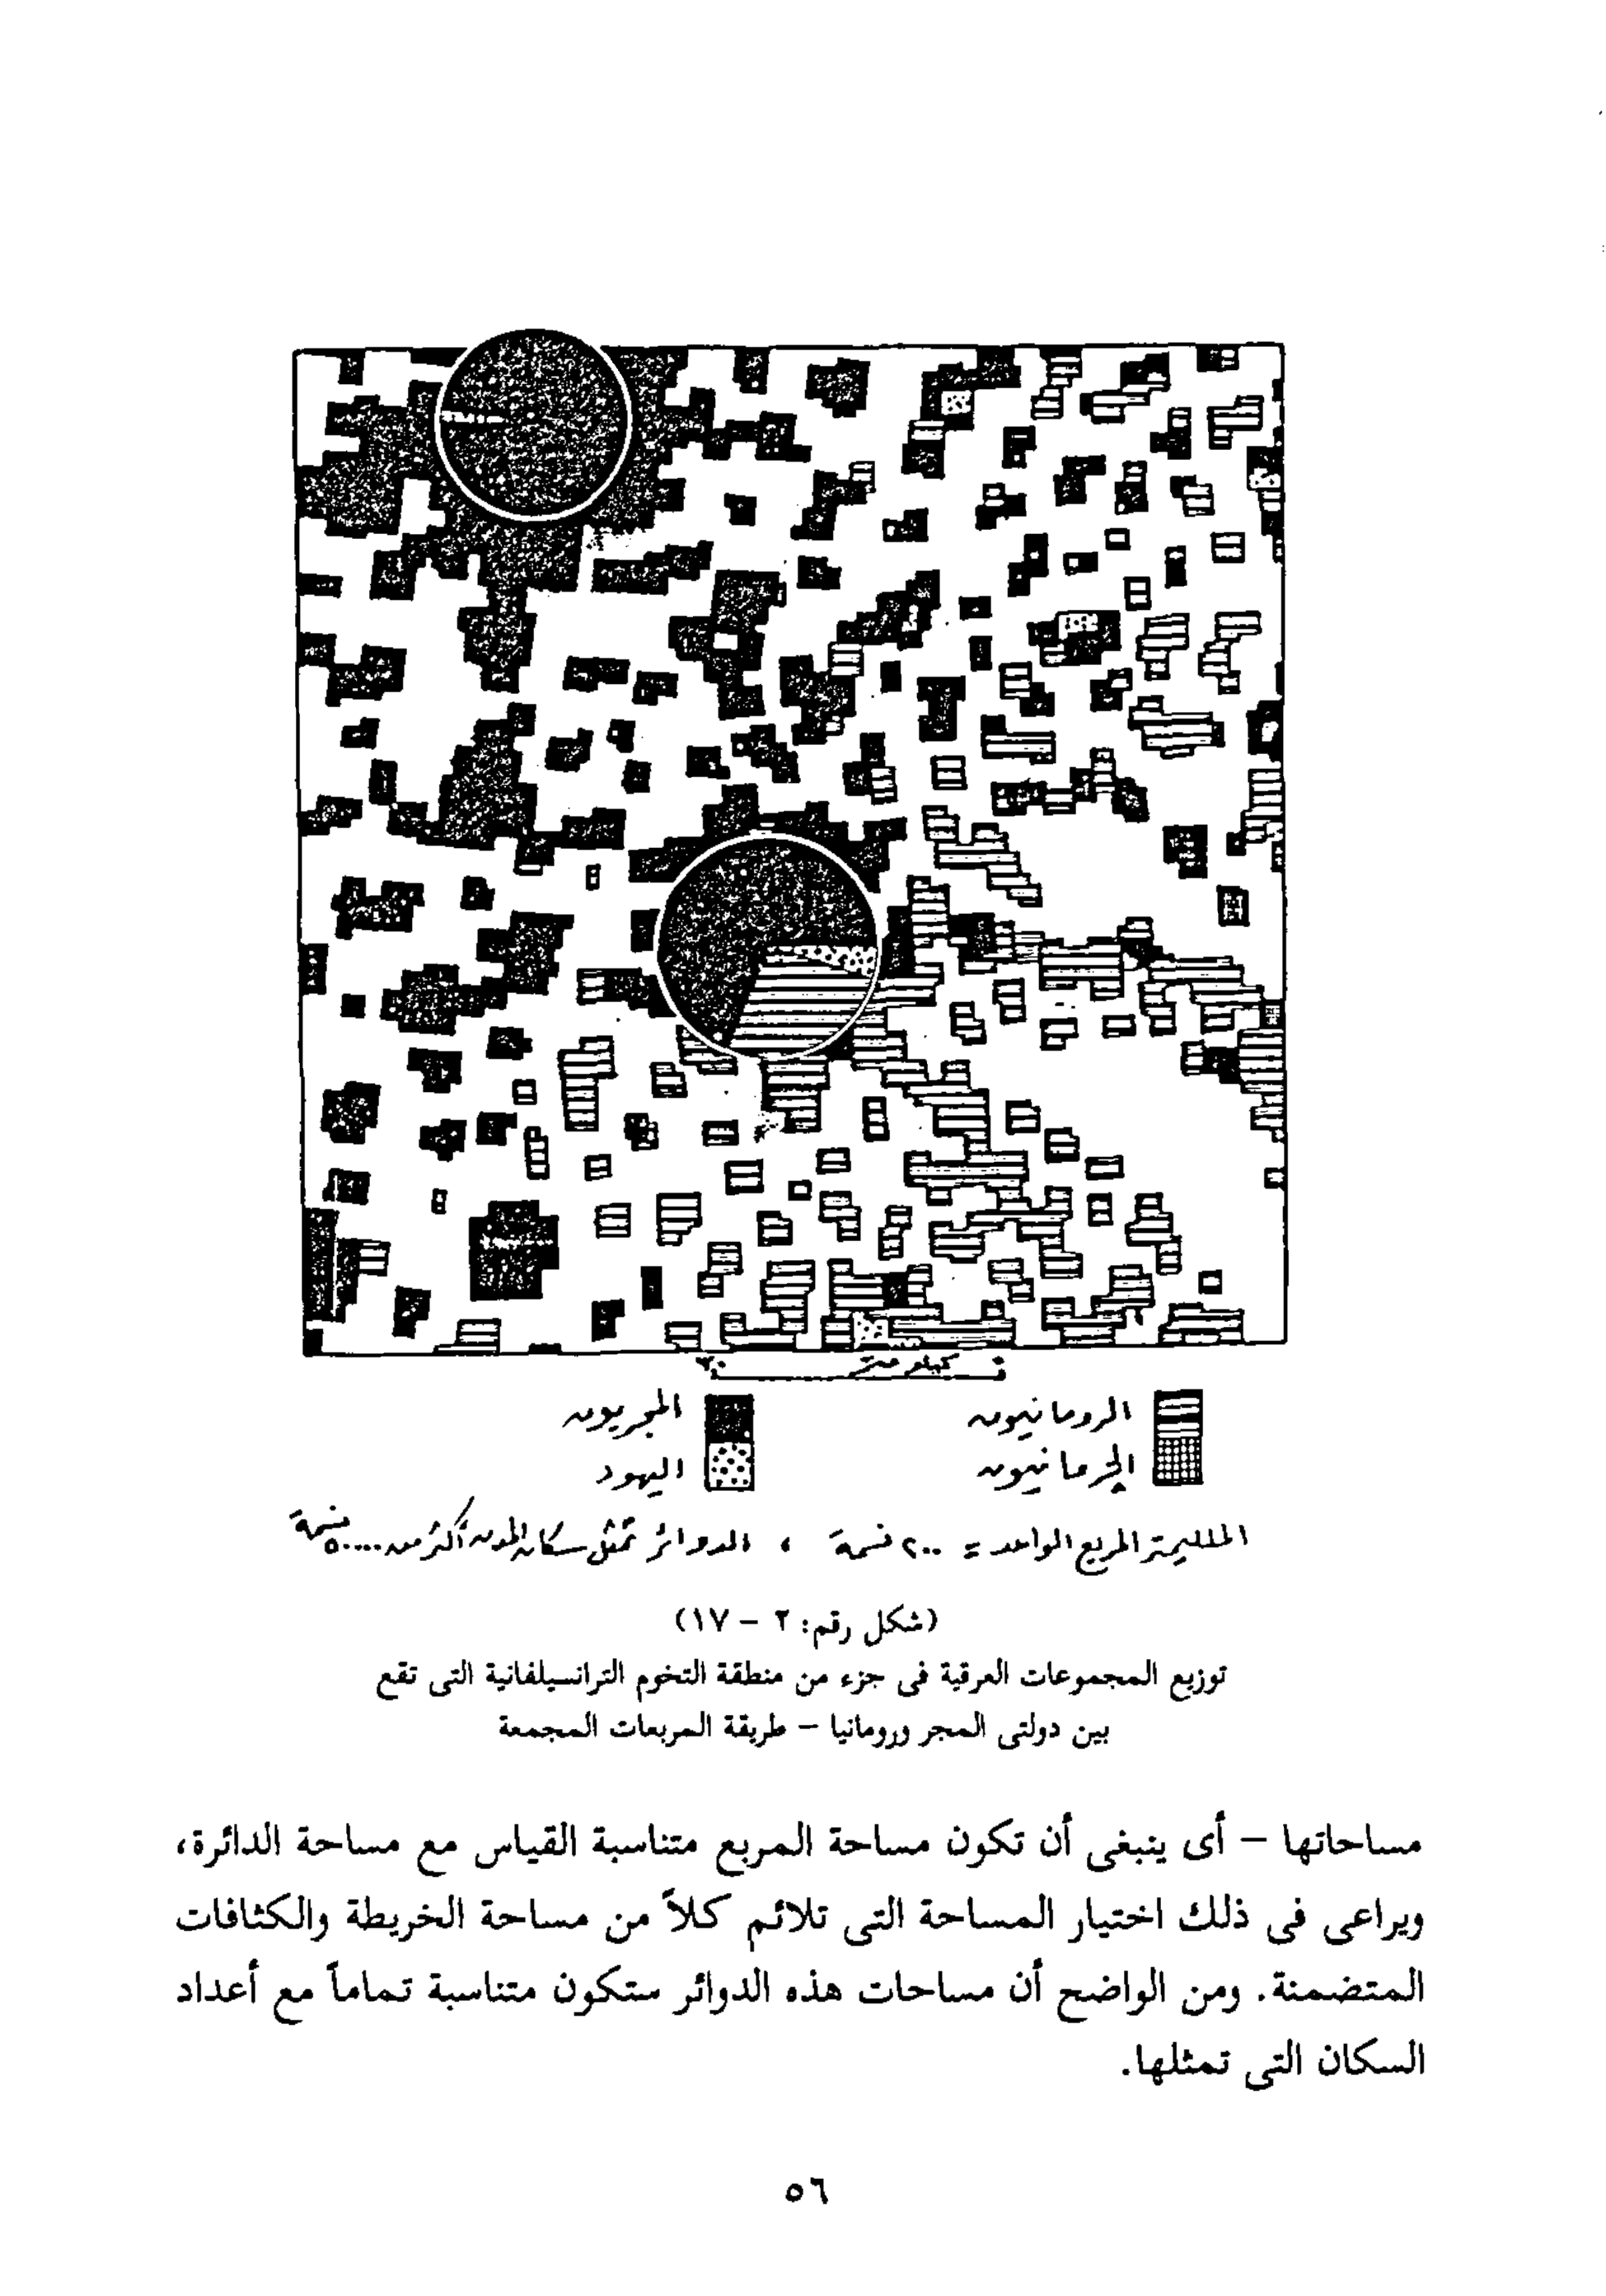 ٣٠ كيلو متر ٠
الرومانيون
المجريون
الجرمانيون
اليهود
الملليمتر المربع الواحد = ٢٠٠ نسمة ، الدوائر تمثل سكان المدن أكثر من ٥٠٠٠٠ نسمة
(شكل رقم: ٢ – ١٧)
توزيع المجموعات العرقية فى جزء من منطقة التخوم الترانسيلفانية التى تقع
بين دولتى المجر ورومانيا – طريقة المربعات المجمعة
مساحاتها – أى ينبغى أن تكون مساحة المربع متناسبة القياس مع مساحة الدائرة،
ويراعى فى ذلك اختيار المساحة التى تلائم كلاً من مساحة الخريطة والكثافات
المتضمنة. ومن الواضح أن مساحات هذه الدوائر ستكون متناسبة تماماً مع أعداد
السكان التى تمثلها.
٥٦